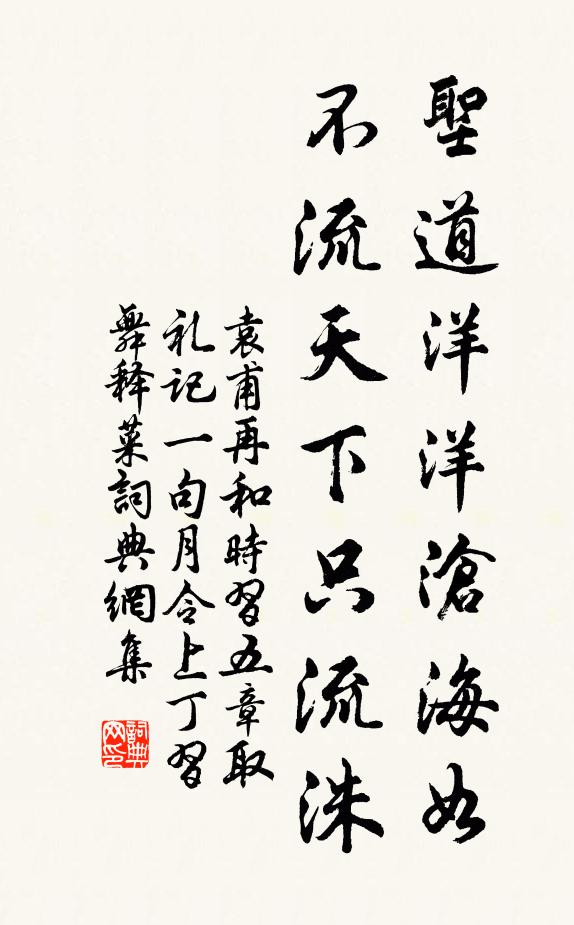 聖道洋洋滄海如
不流天下只流洙
袁甫再和時習五章取
礼記一句月令上丁習
舞释菜詞典網集
詞典網印